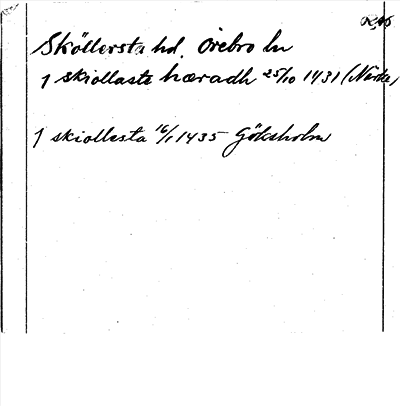 Sköllersta hd. Örebro ln
J skiollasta hæradh 25/10 1431 (Närke)
J skiollesta 16/1 1435 Göksholm